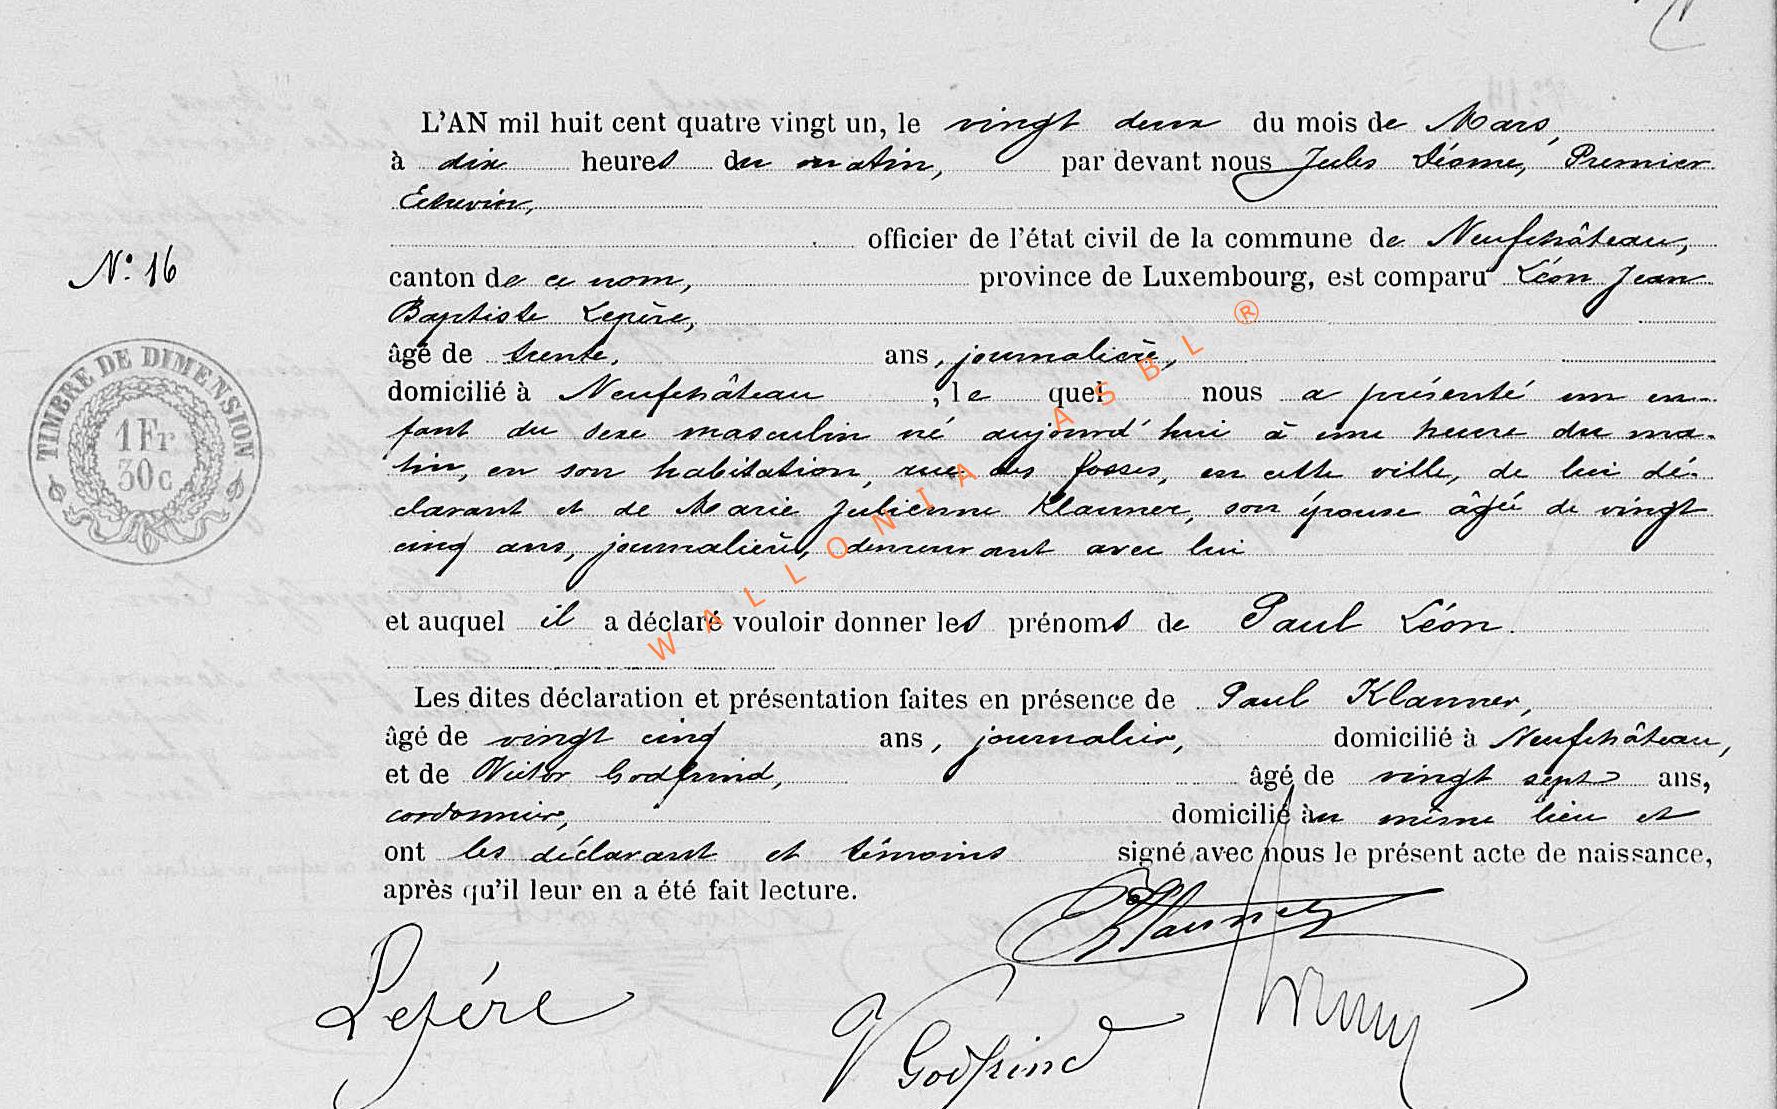 L'AN mil huit cent quatre vingt un, le vingt deux du mois de Mars,
à dix heures du matin, par devant nous Jules Déome, Premier
Echevin,
officier de l'état civil de la commune de Neufchâteau,
N° 16
canton de ce nom, province de Luxembourg, est comparu Léon Jean
Baptiste Lepère,
âgé de trente, ans, journalière,
domicilié à Neufchâteau, le quel nous a présenté un en-
fant du sexe masculin né aujourd'hui à une heure du ma-
tin, en son habitation, rue des fosses, en cette ville, de lui dé-
clarant et de Marie Julienne Klauner, son épouse âgée de vingt
cinq ans, journalière, demeurant avec lui
et auquel il a déclaré vouloir donner les prénoms de Paul Léon.
Les dites déclaration et présentation faites en présence de Paul Klauner,
âgé de vingt cinq ans, journalier, domicilié à Neufchâteau,
et de Victor Godfrind, âgé de vingt sept ans,
cordonnier, domicilié au même lieu et
ont les déclarant et témoins signé avec nous le présent acte de naissance,
après qu'il leur en a été fait lecture.
Klauner
Lepére
V Godfrind
TIMBRE DE DIMENSION
1 Fr
30c
WALLONIA ASBL ®